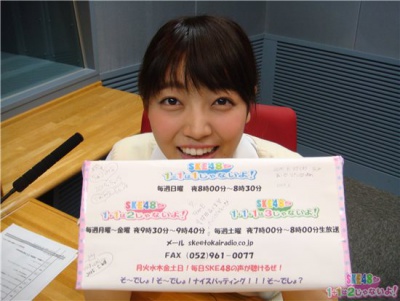 SKE48の
1+1は1じゃないよ!
毎週日曜 夜8時00分〜8時30分
SKE48の
1+1は2じゃないよ!
1+1+1は3じゃないよ!
毎週月曜〜金曜 夜9時30分〜9時40分
毎週土曜 夜7時00分〜8時00分生放送
メール ske@tokairadio.co.jp
FAX (052)961-0077
月火水木金土日!毎日SKE48の声が聴けるぜ!
そ〜でしょ!そ〜でしょ!ナイスバッティング!!!そ〜でしょ?
SKE48の
1+1は2じゃないよ!